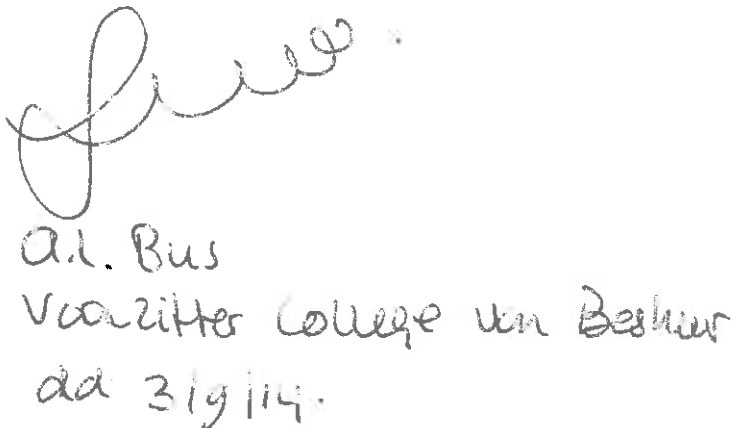 A.L. Bus
Voorzitter College van Bestuur
dd 3/9/14.